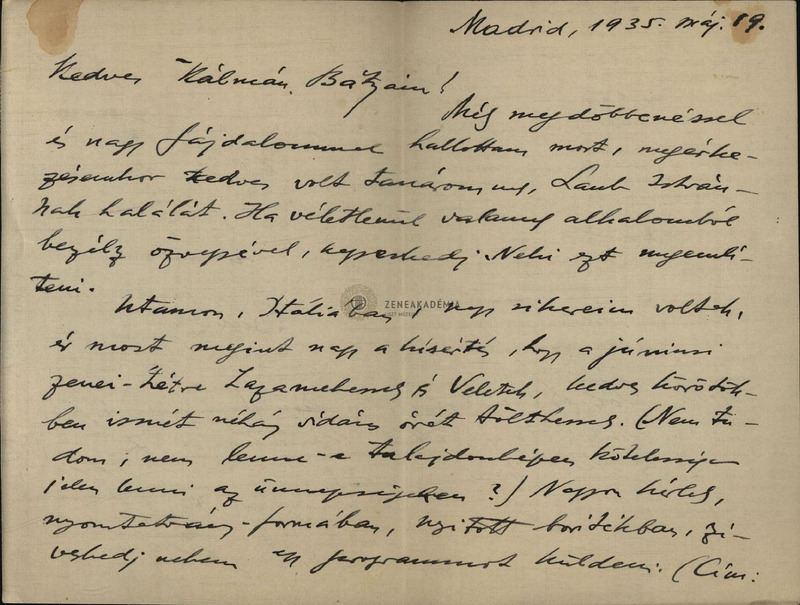 Madrid, 1935. máj. 19.
Kedves Kálmán Bátyám!
Mély megdöbbenéssel
és nagy fájdalommal hallottam most, megérke-
zésemkor kedves volt tanárom, Laub István-
nak halálát. Ha véletlenül valamely alkalomból
beszélsz özvegyével, kegyeskedj Neki ezt megemlí-
teni.
Utamon, Itáliában, nagy sikereim voltak,
és most megint nagy a kísértés, hogy a júniusi
zenei-hétre hazamehessek és Veletek, kedves körötök-
ben ismét néhány vidám órát tölthessek. (Nem tu-
dom, nem lenne-e tulajdonképen kötelességem
jelen lenni az ünnepségeken?) Nagyon kérlek,
nyomtatvány-formában, nyitott borítékban, szí-
veskedj nekem egy programmot küldeni. (Cím:
ZENEAKADÉMIA